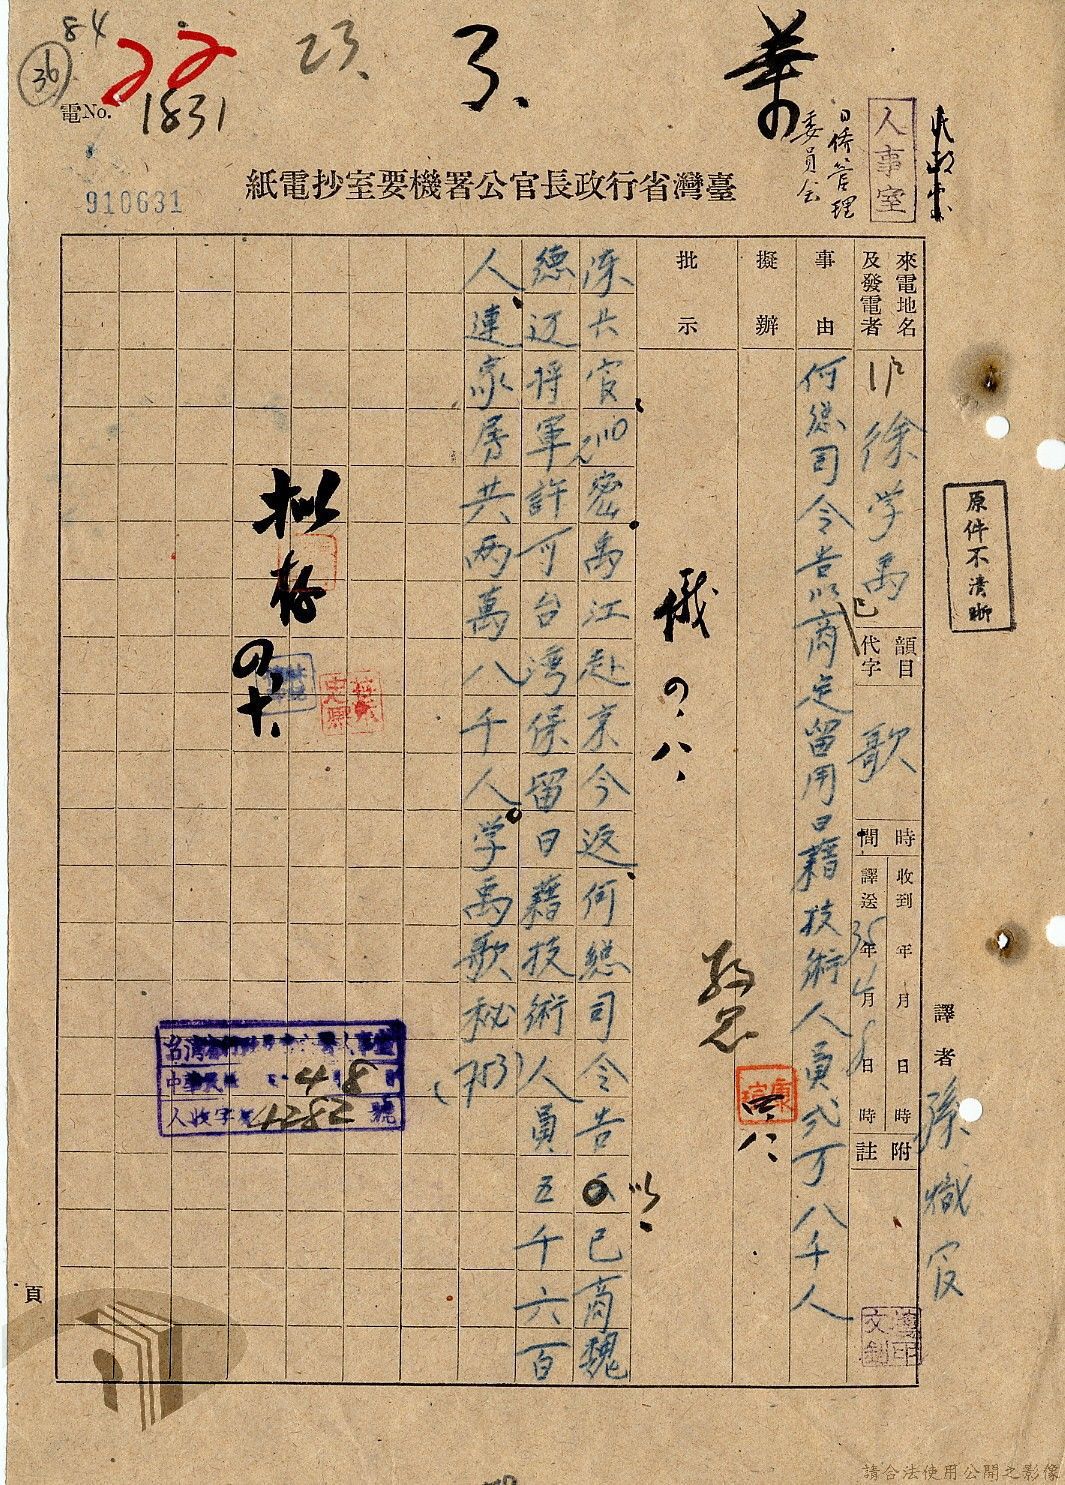 84
36
22
23.
了、
電No. 1831
910631
人事室
日僑管理
委員会
臺灣省行政長官公署機要室抄電紙
來電地名
及發電者
徐学禹
韻目
代字
歌
時
間
收到 年 月 日 時
譯送 35年4月8日 時
附
註
譯者 孫熾官
事由
何總司令告以商定留用日籍技術人員弍万八千人
擬辦
批示
四、八、
陳長官2110密禹江赴京今返何總司令告以已商魏
德迈将軍許可台灣保留日藉技術人員五千六百
人連家屬共两萬八千人学禹歌秘(753)
拟存
人收字第1282號
中華民國
4 8
原件不清晰
頁
請合法使用公開之影像